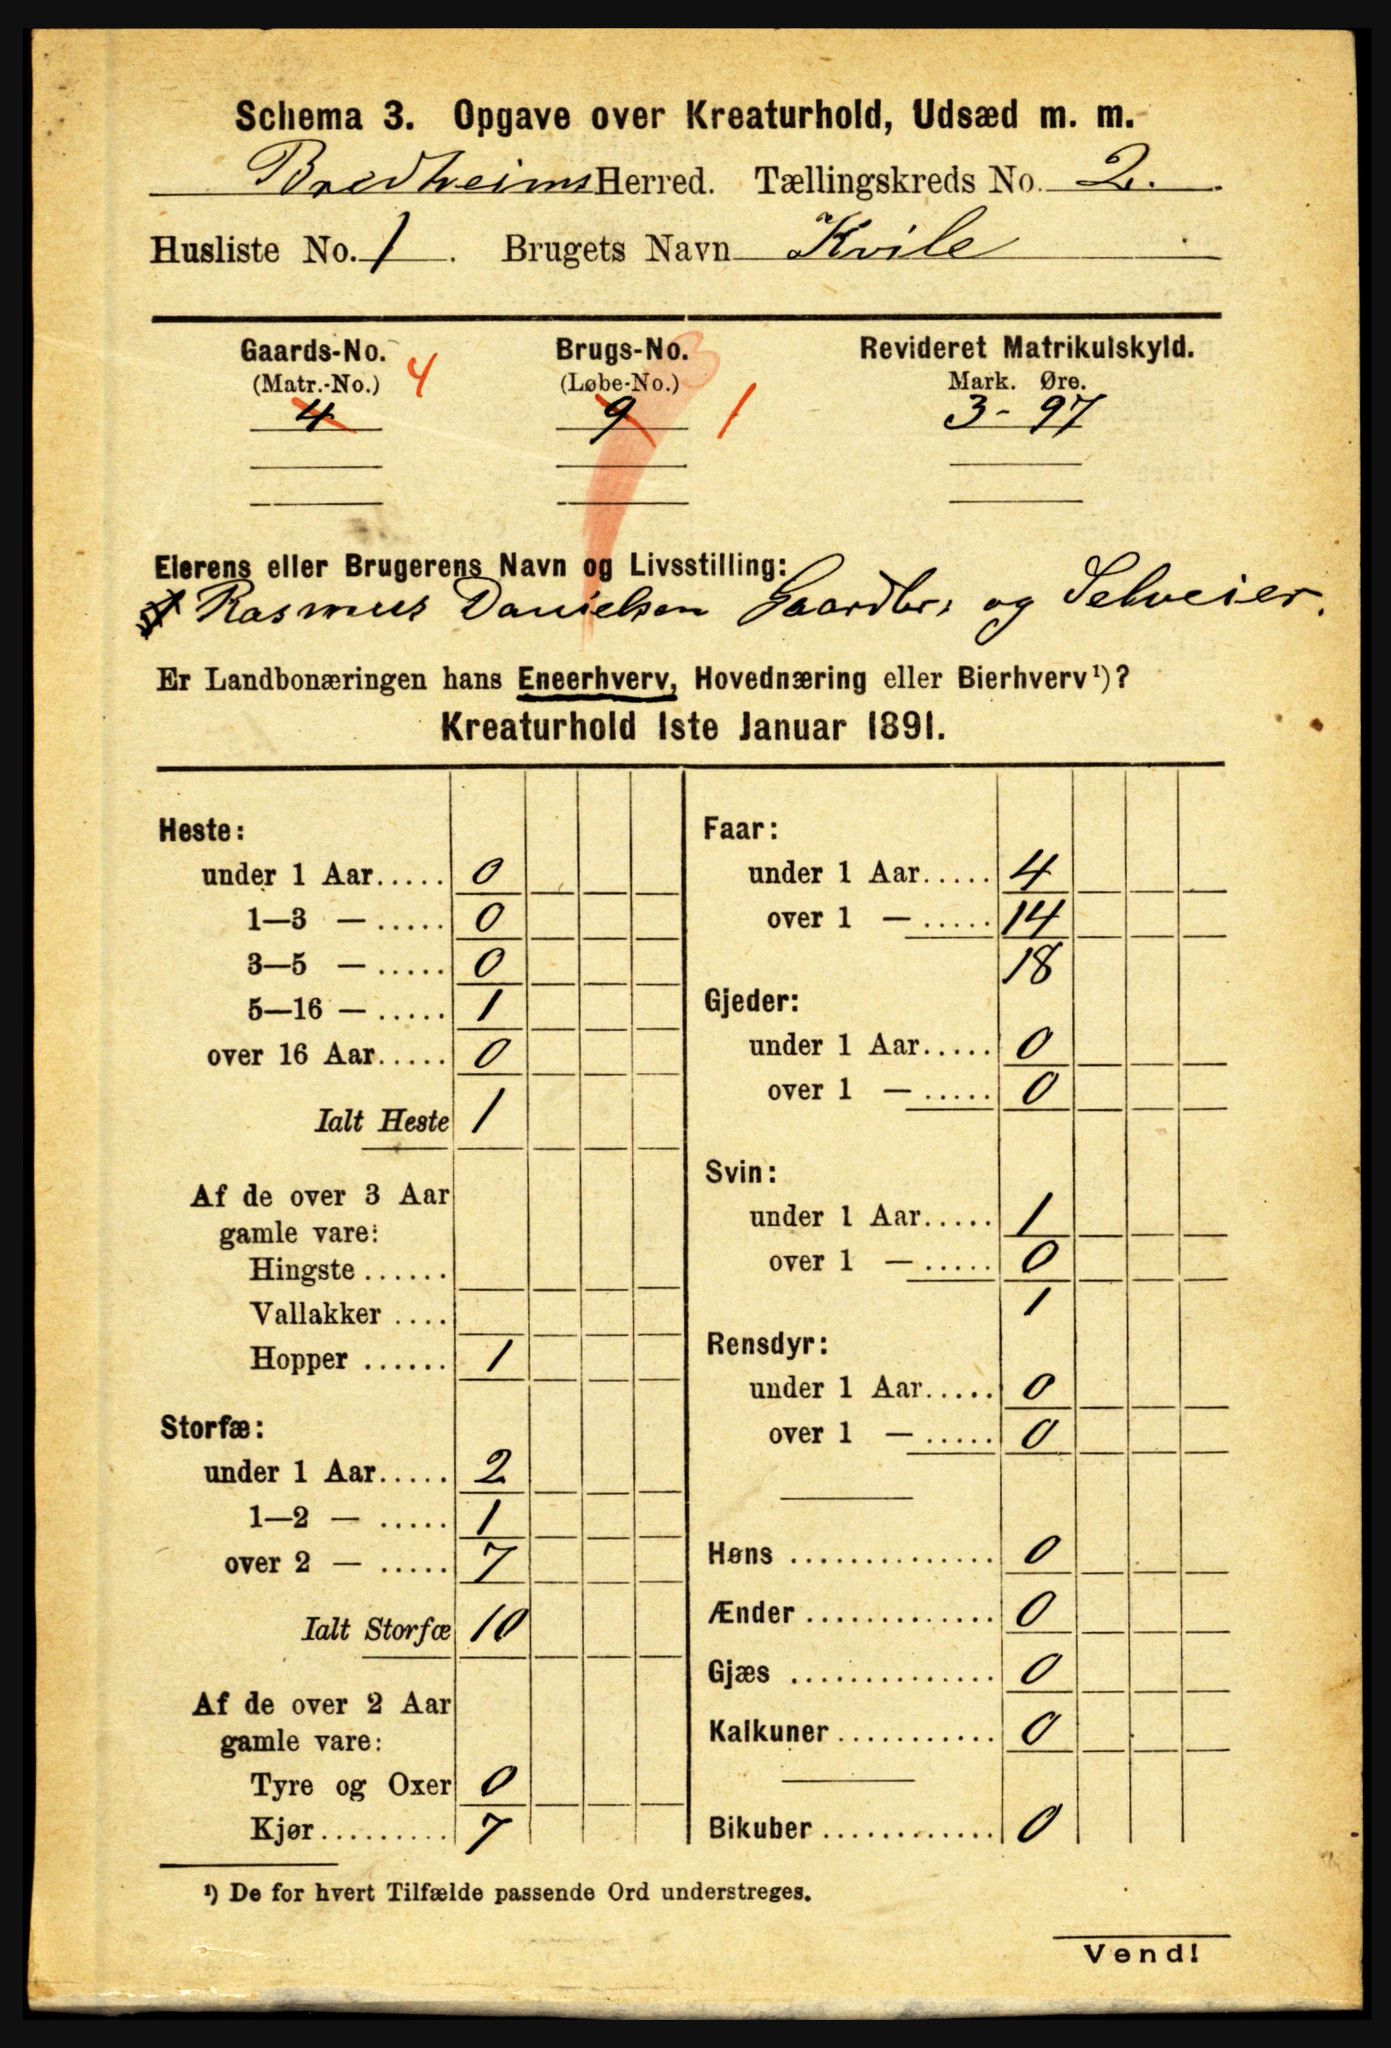 Schema 3. Opgave over Kreaturhold, Udsæd m. m.
Bredheims Herred. Tællingskreds No. 2.
Husliste No. 1. Brugets Navn Kvile
Gaards-No. Brugs-No. Revideret Matrikulskyld.
(Matr.-No.) 4 (Løbe-No.) Mark. Øre.
4 9 1 3-97
Eierens eller Brugerens Navn og Livsstilling:
Rasmus Danielsen Gaardbr. og Selveier.
Er Landbonæringen hans Eneerhverv, Hovednæring eller Bierhverv¹)?
Kreaturhold 1ste Januar 1891.
Heste:
under 1 Aar..... 0
1—3 — ..... 0
3—5 — ..... 0
5—16 — ..... 1
over 16 Aar..... 0
Ialt Heste 1
Af de over 3 Aar
gamle vare:
Hingste ......
Vallakker ....
Hopper ...... 1
Storfæ:
under 1 Aar..... 2
1—2 — ..... 1
over 2 — ..... 7
Ialt Storfæ 10
Af de over 2 Aar
gamle vare:
Tyre og Oxer 0
Kjør......... 7
Faar:
under 1 Aar..... 4
over 1 — ..... 14
18
Gjeder:
under 1 Aar..... 0
over 1 — ..... 0
Svin:
under 1 Aar..... 1
over 1 — ..... 0
1
Rensdyr:
under 1 Aar..... 0
over 1 — ..... 0
Høns .............. 0
Ænder ............. 0
Gjæs .............. 0
Kalkuner ........... 0
Bikuber ............ 0
¹) De for hvert Tilfælde passende Ord understreges.
Vend!